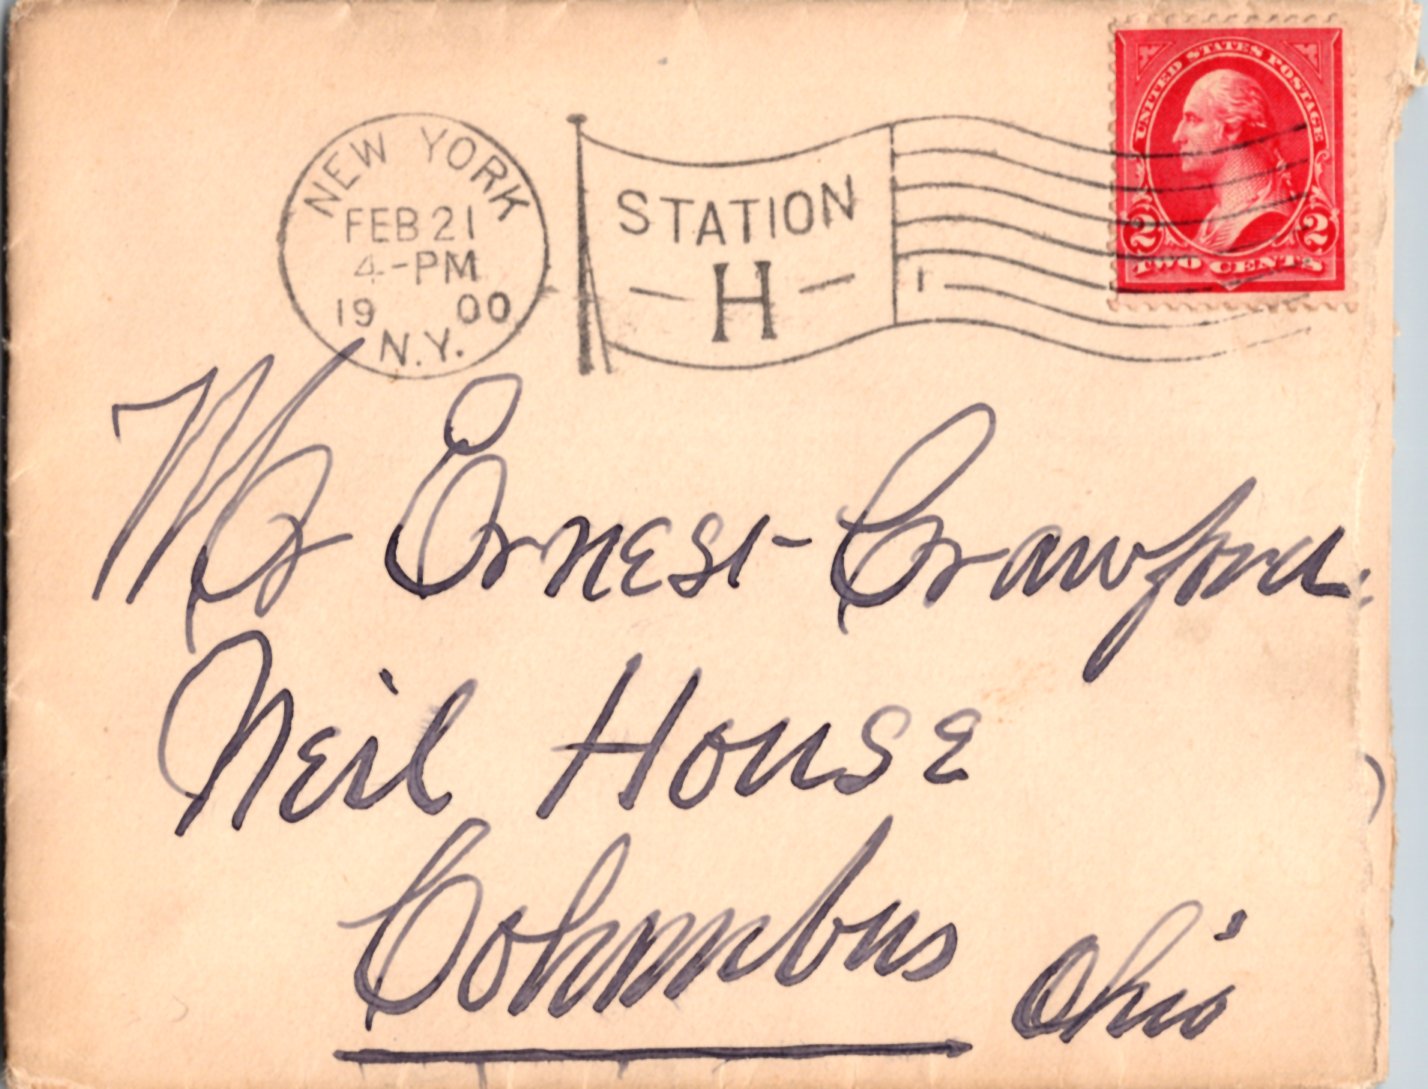 UNITED STATES POSTAGE
2 2
TWO CENTS
NEW YORK
FEB 21
4-PM
19 00
N.Y.
STATION
H
1
Mr Ernest Crawford
Neil House
Columbus
Ohio